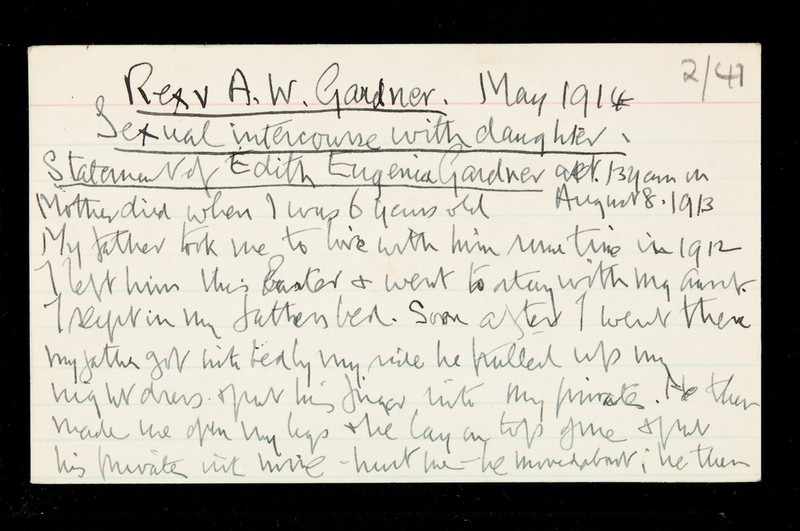 2/41
Rex v A. W. Gardner. May 1914
Sexual intercourse with daughter.
Statement of Edith Eugenia Gardner aet. 13 years on
August 8. 1913
Mother died when I was 6 years old
My father took me to live with him some time in 1912
I left him this Easter & went to stay with my aunt.
I slept in my fathers bed. Soon after I went there
my father got into bed by my side he pulled up my
night dress & put his finger into my private. He then
made me open my legs & he lay on top of me & put
his private into mine - hurt me - he moved about; he then